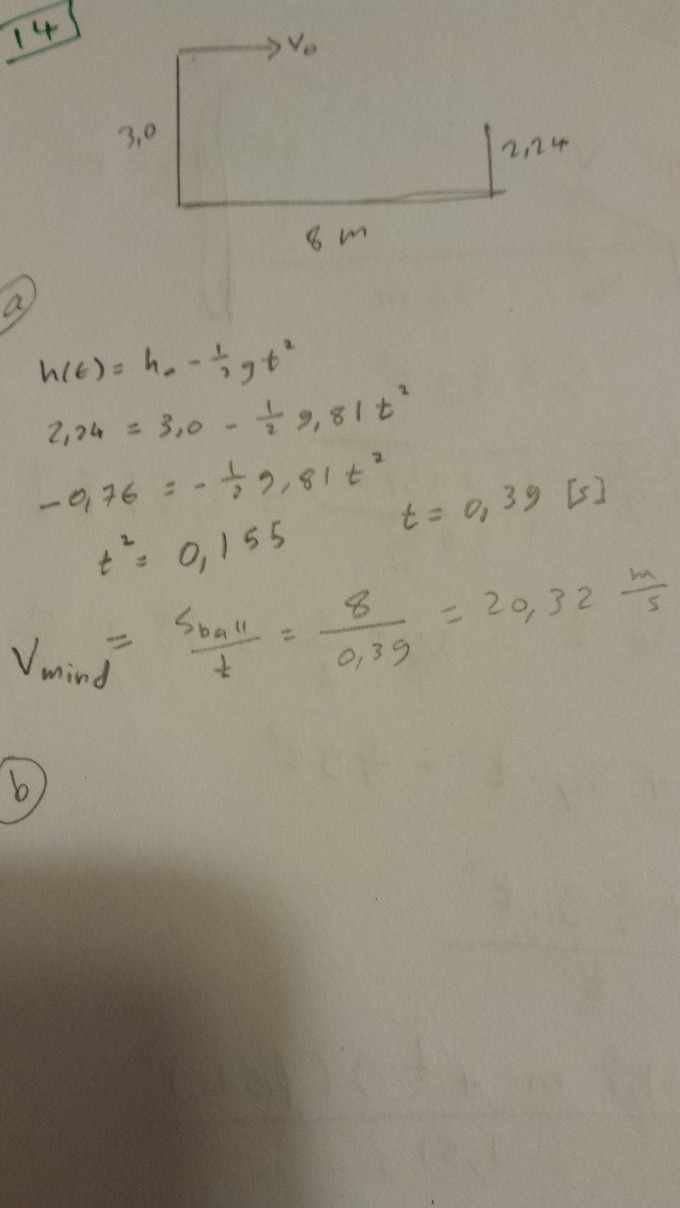 14
V₀
3,0
2,24
8 m
a
h(t) = h₀ - ½ g t²
2,24 = 3,0 - ½ 9,81 t²
-0,76 = - ½ 9,81 t²
t² = 0,155 t = 0,39 [s]
Vmind = Sball/t = 8/0,39 = 20,32 m/s
b